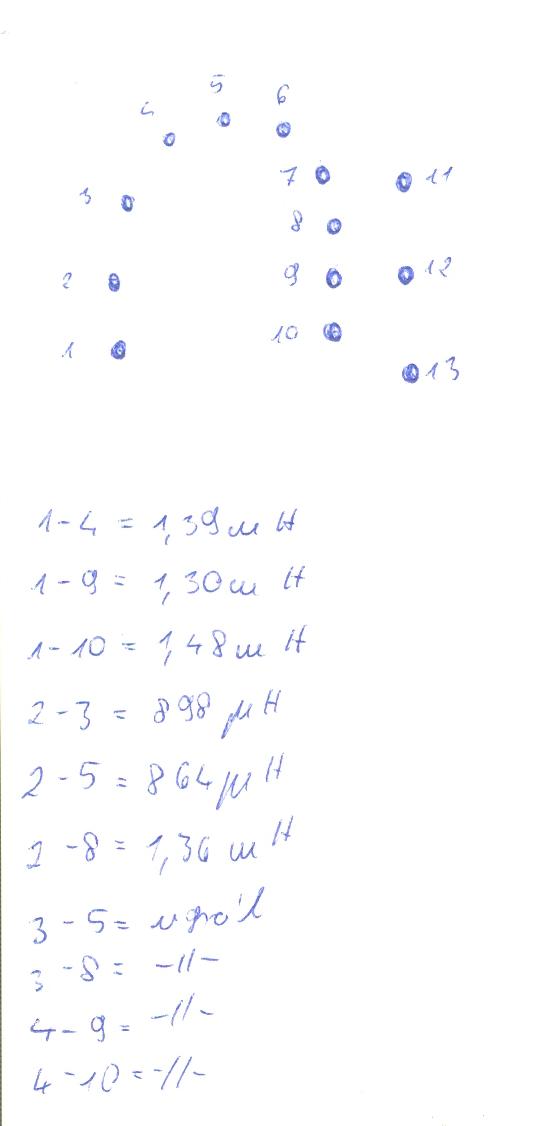 5
6
4
7
11
3
8
2
9
12
1
10
13
1-4 = 1,39 mH
1-9 = 1,30 mH
1-10 = 1,48 mH
2-3 = 898 µH
2-5 = 864 µH
2-8 = 1,36 mH
3-5 =
3-8 = -//-
4-9 = -//-
4-10 = -//-